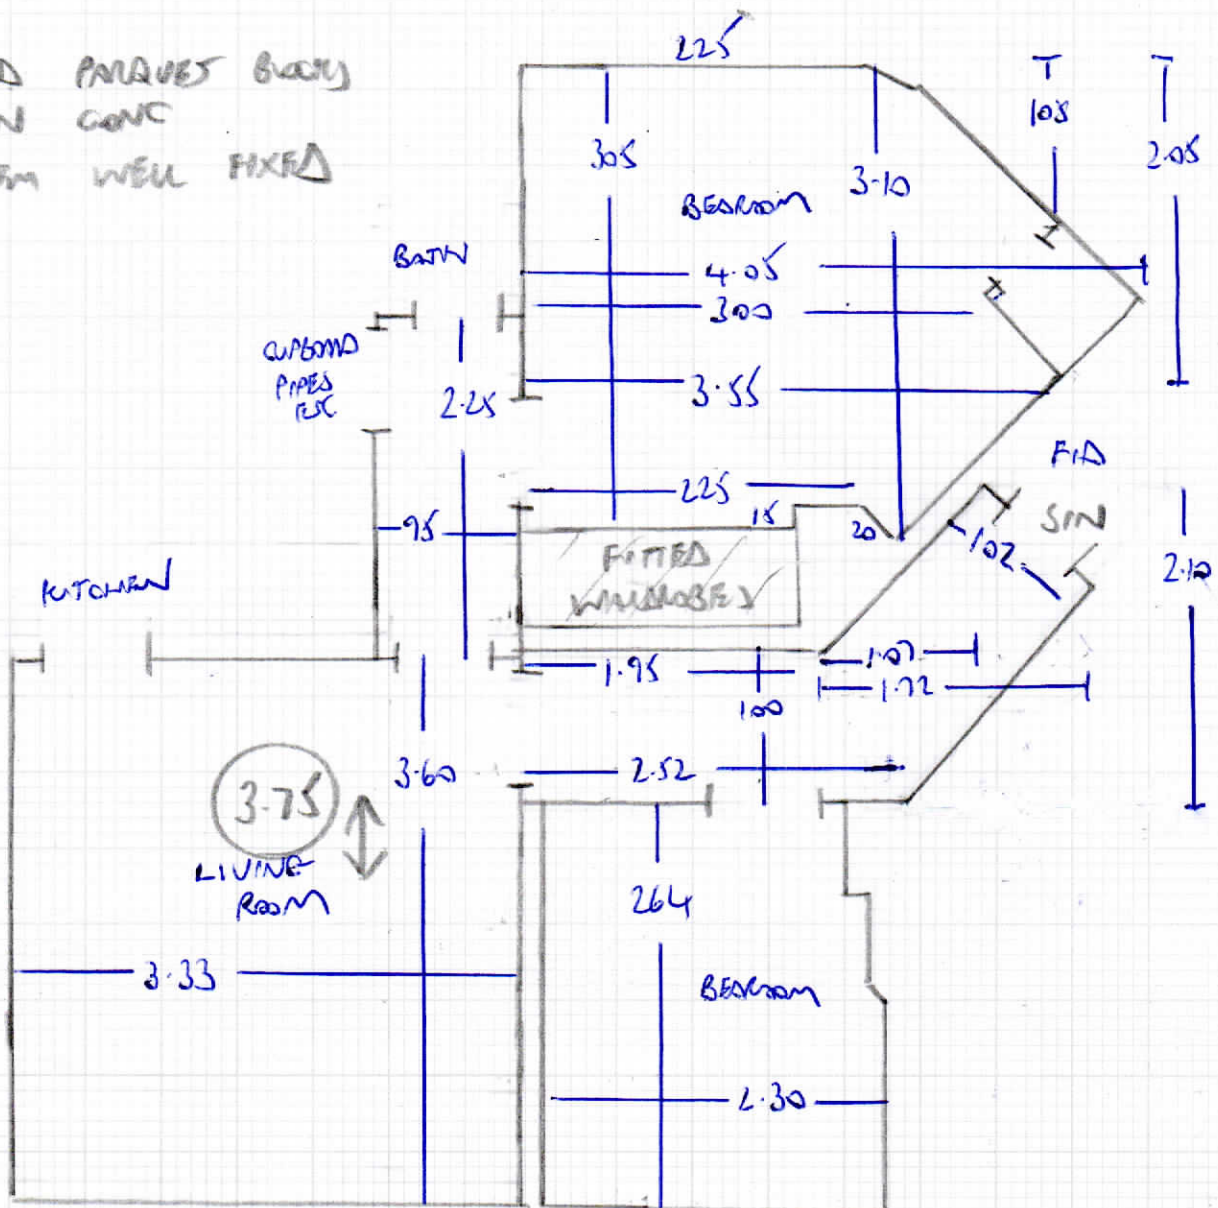 D PARQUET BLOCKS
N CONC
EM WELL FIXED
225
105
2.05
305
3.10
BEDROOM
BATH
4.05
300
CUPBOARD
PIPES
ETC
2.25
3.55
F/D
225
15
20
SIN
95
FITTED
WARDROBES
1.02
2.10
KITCHEN
1.95
1.07
1.72
100
3.60
2.52
3.75
LIVING
ROOM
264
3.33
BEDROOM
2.30